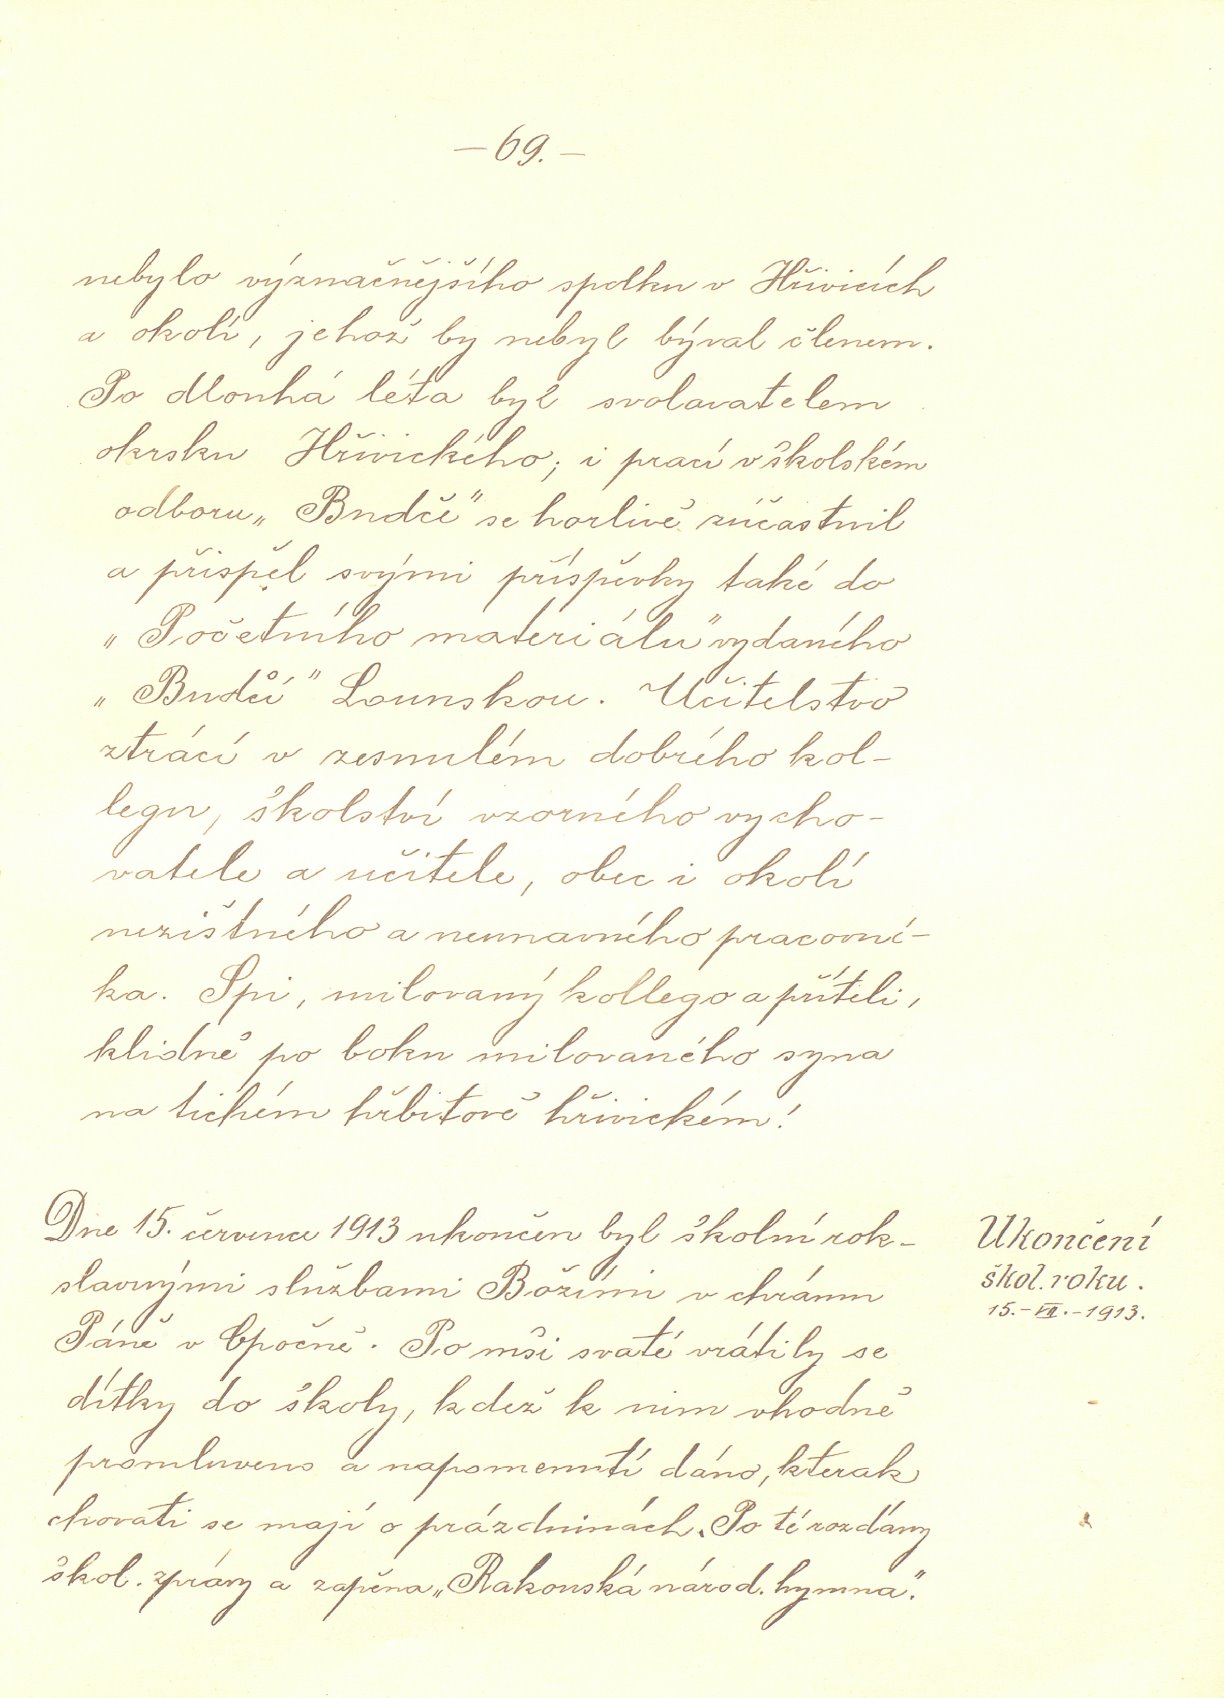 — 69. —
nebylo význačnějšího spolku v Hřivicích
a okolí, jehož by nebyl býval členem.
Po dlouhá léta byl svolavatelem
okrsku Hřivického; i prací v školském
odboru „Budče" se horlivě zúčastnil
a přispěl svými příspěvky také do
„Početního materiálu" vydaného
„Budčí" Lounskou. Učitelstvo
ztrácí v zesnulém dobrého kol-
legu, školství vzorného vycho-
vatele a učitele, obec i okolí
nezištného a neunavného pracovní-
ka. Spi, milovaný kollego a příteli,
klidně po boku milovaného syna
na tichém hřbitově hřivickém!
Dne 15. července 1913 ukončen byl školní rok-
slavnými službami Božími v chrámu
Páně v Opočně. Po mši svaté vrátily se
dítky do školy, kdež k nim vhodně
promluveno a napomenutí dáno, kterak
chovati se mají o prázdninách. Po té rozdány
škol. zprávy a zapěna „Rakouská národ. hymna".
Ukončení
škol. roku.
15.-VII.-1913.